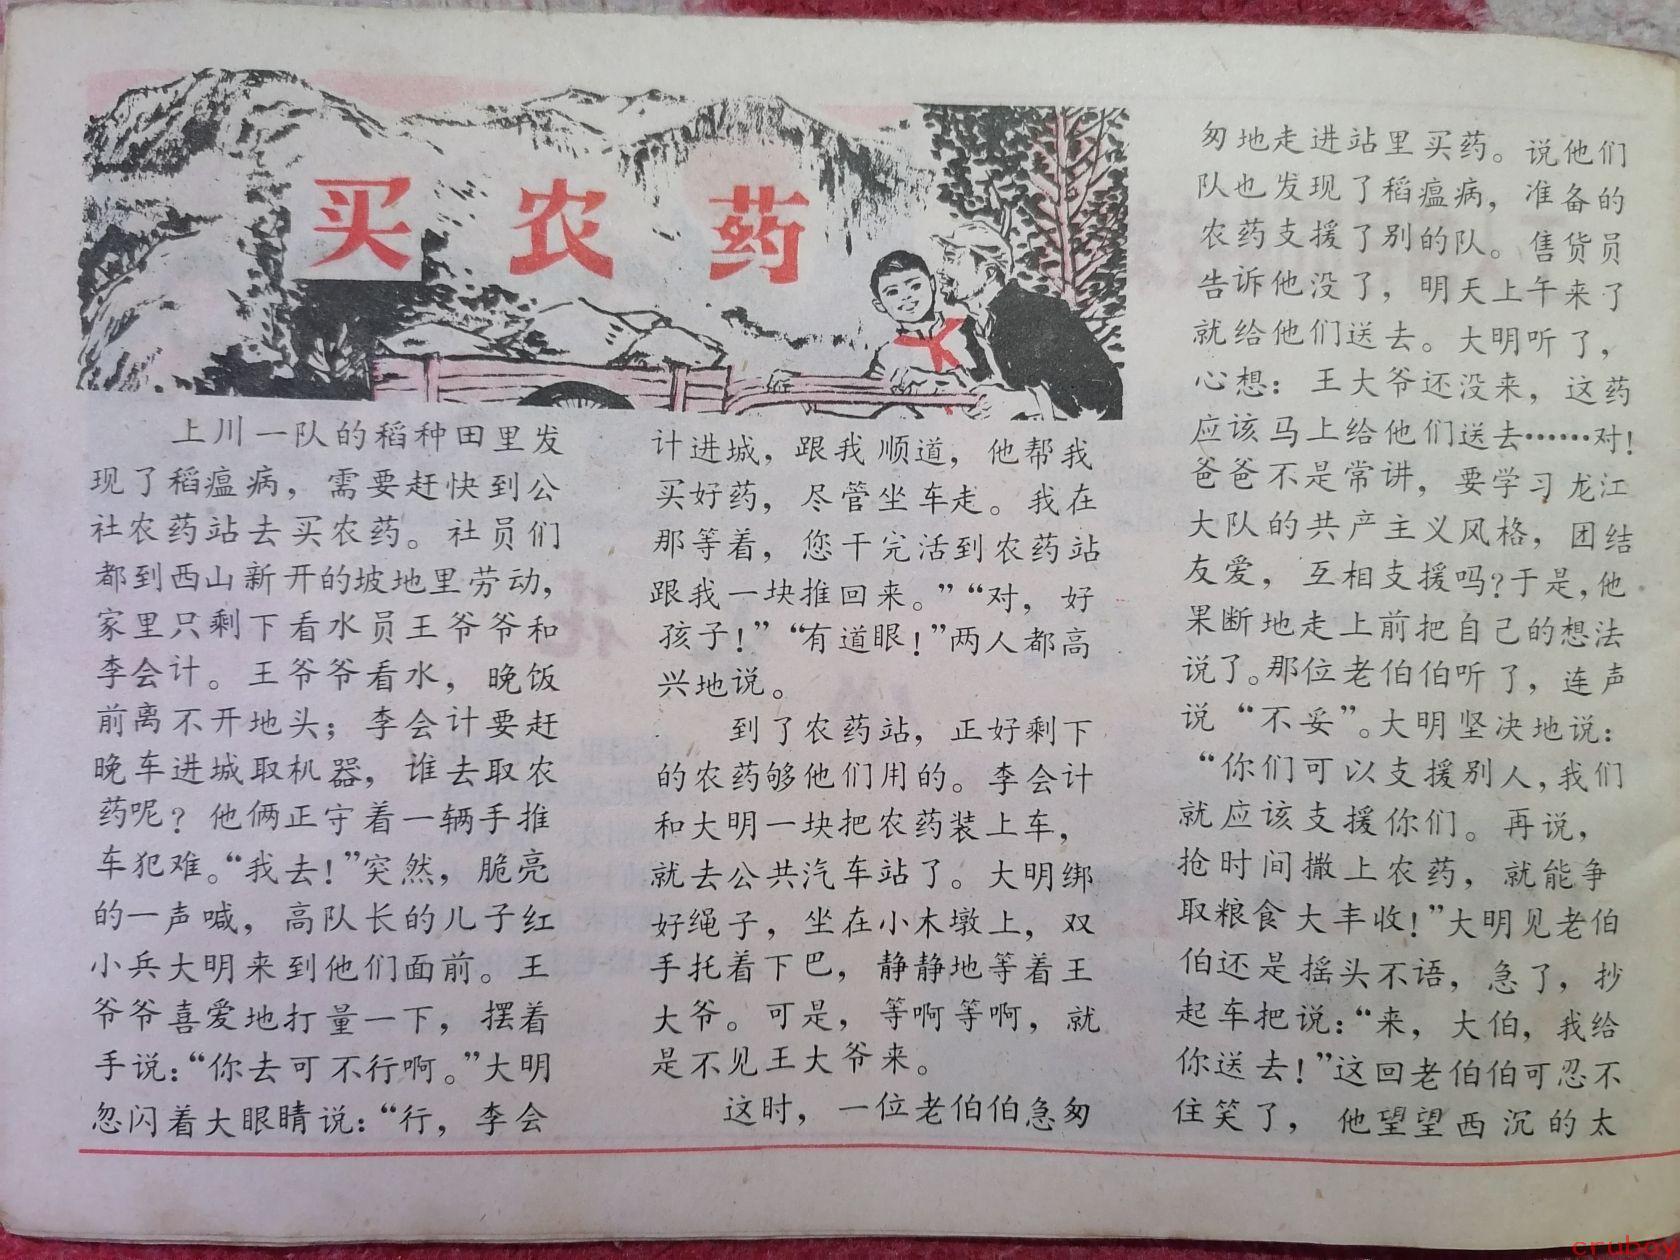 买农药
上川一队的稻种田里发
现了稻瘟病，需要赶快到公
社农药站去买农药。社员们
都到西山新开的坡地里劳动，
家里只剩下看水员王爷爷和
李会计。王爷爷看水，晚饭
前离不开地头；李会计要赶
晚车进城取机器，谁去取农
药呢？他俩正守着一辆手推
车犯难。“我去！”突然，脆亮
的一声喊，高队长的儿子红
小兵大明来到他们面前。王
爷爷喜爱地打量一下，摆着
手说：“你去可不行啊。”大明
忽闪着大眼睛说：“行，李会
计进城，跟我顺道，他帮我
买好药，尽管坐车走。我在
那等着，您干完活到农药站
跟我一块推回来。”“对，好
孩子！”“有道眼！”两人都高
兴地说。
到了农药站，正好剩下
的农药够他们用的。李会计
和大明一块把农药装上车，
就去公共汽车站了。大明绑
好绳子，坐在小木墩上，双
手托着下巴，静静地等着王
大爷。可是，等啊等啊，就
是不见王大爷来。
这时，一位老伯伯急匆
匆地走进站里买药。说他们
队也发现了稻瘟病，准备的
农药支援了别的队。售货员
告诉他没了，明天上午来了
就给他们送去。大明听了，
心想：王大爷还没来，这药
应该马上给他们送去……对！
爸爸不是常讲，要学习龙江
大队的共产主义风格，团结
友爱，互相支援吗？于是，他
果断地走上前把自己的想法
说了。那位老伯伯听了，连声
说“不妥”。大明坚决地说：
“你们可以支援别人，我们
就应该支援你们。再说，
抢时间撒上农药，就能争
取粮食大丰收！”大明见老伯
伯还是摇头不语，急了，抄
起车把说：“来，大伯，我给
你送去！”这回老伯伯可忍不
住笑了，他望望西沉的太